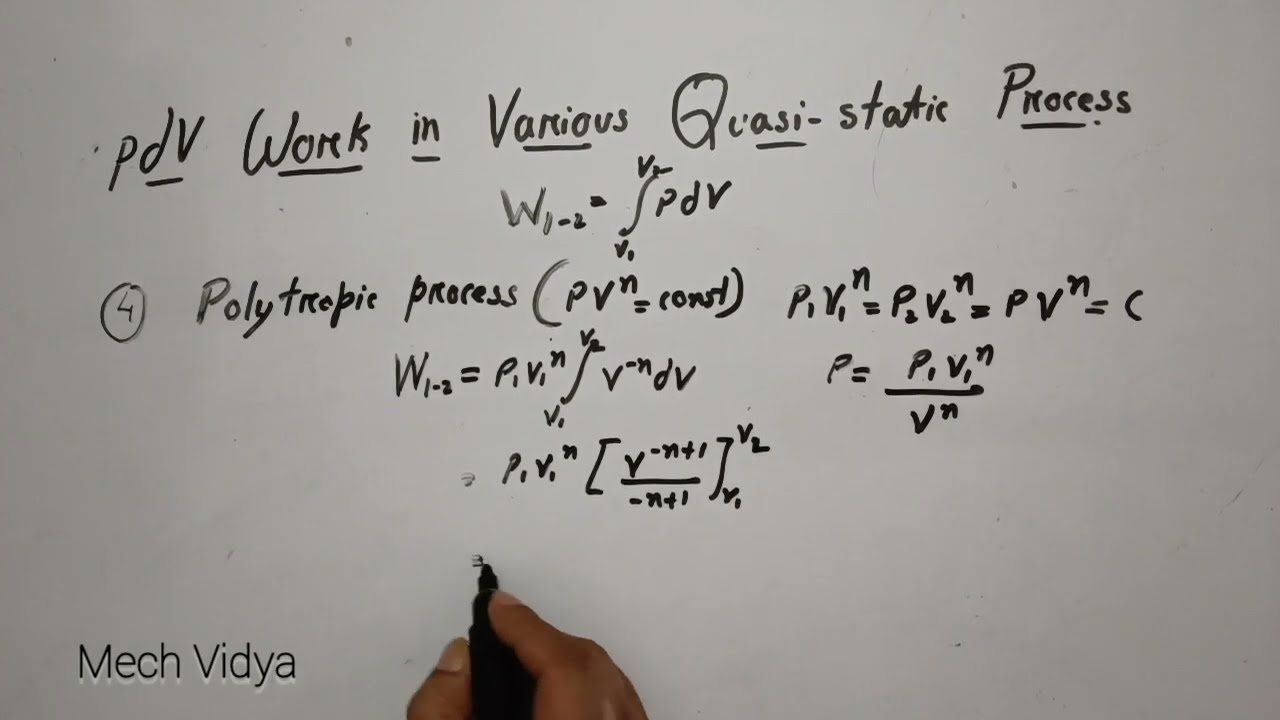 pdV Work in Various Quasi-static Process
W₁₋₂ = ∫_V₁^V₂ PdV
④ Polytropic process (PVⁿ = const) P₁V₁ⁿ = P₂V₂ⁿ = PVⁿ = C
W₁₋₂ = P₁V₁ⁿ ∫_V₁^V₂ V⁻ⁿdV P = P₁V₁ⁿ / Vⁿ
= P₁V₁ⁿ [V⁻ⁿ⁺¹ / -n+1]_V₁^V₂
=
Mech Vidya